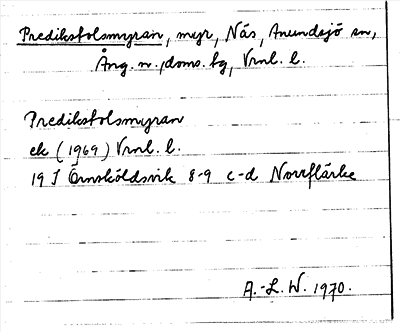 Predikstolsmyran, myr, Näs, Anundsjö sn,
Ång. n., doms. tg, Vrnl. l.
Predikstolsmyran
ek (1969) Vrnl. l.
19 J Örnsköldsvik 8-9 c-d Norrflärke
A.-L. W. 1970.